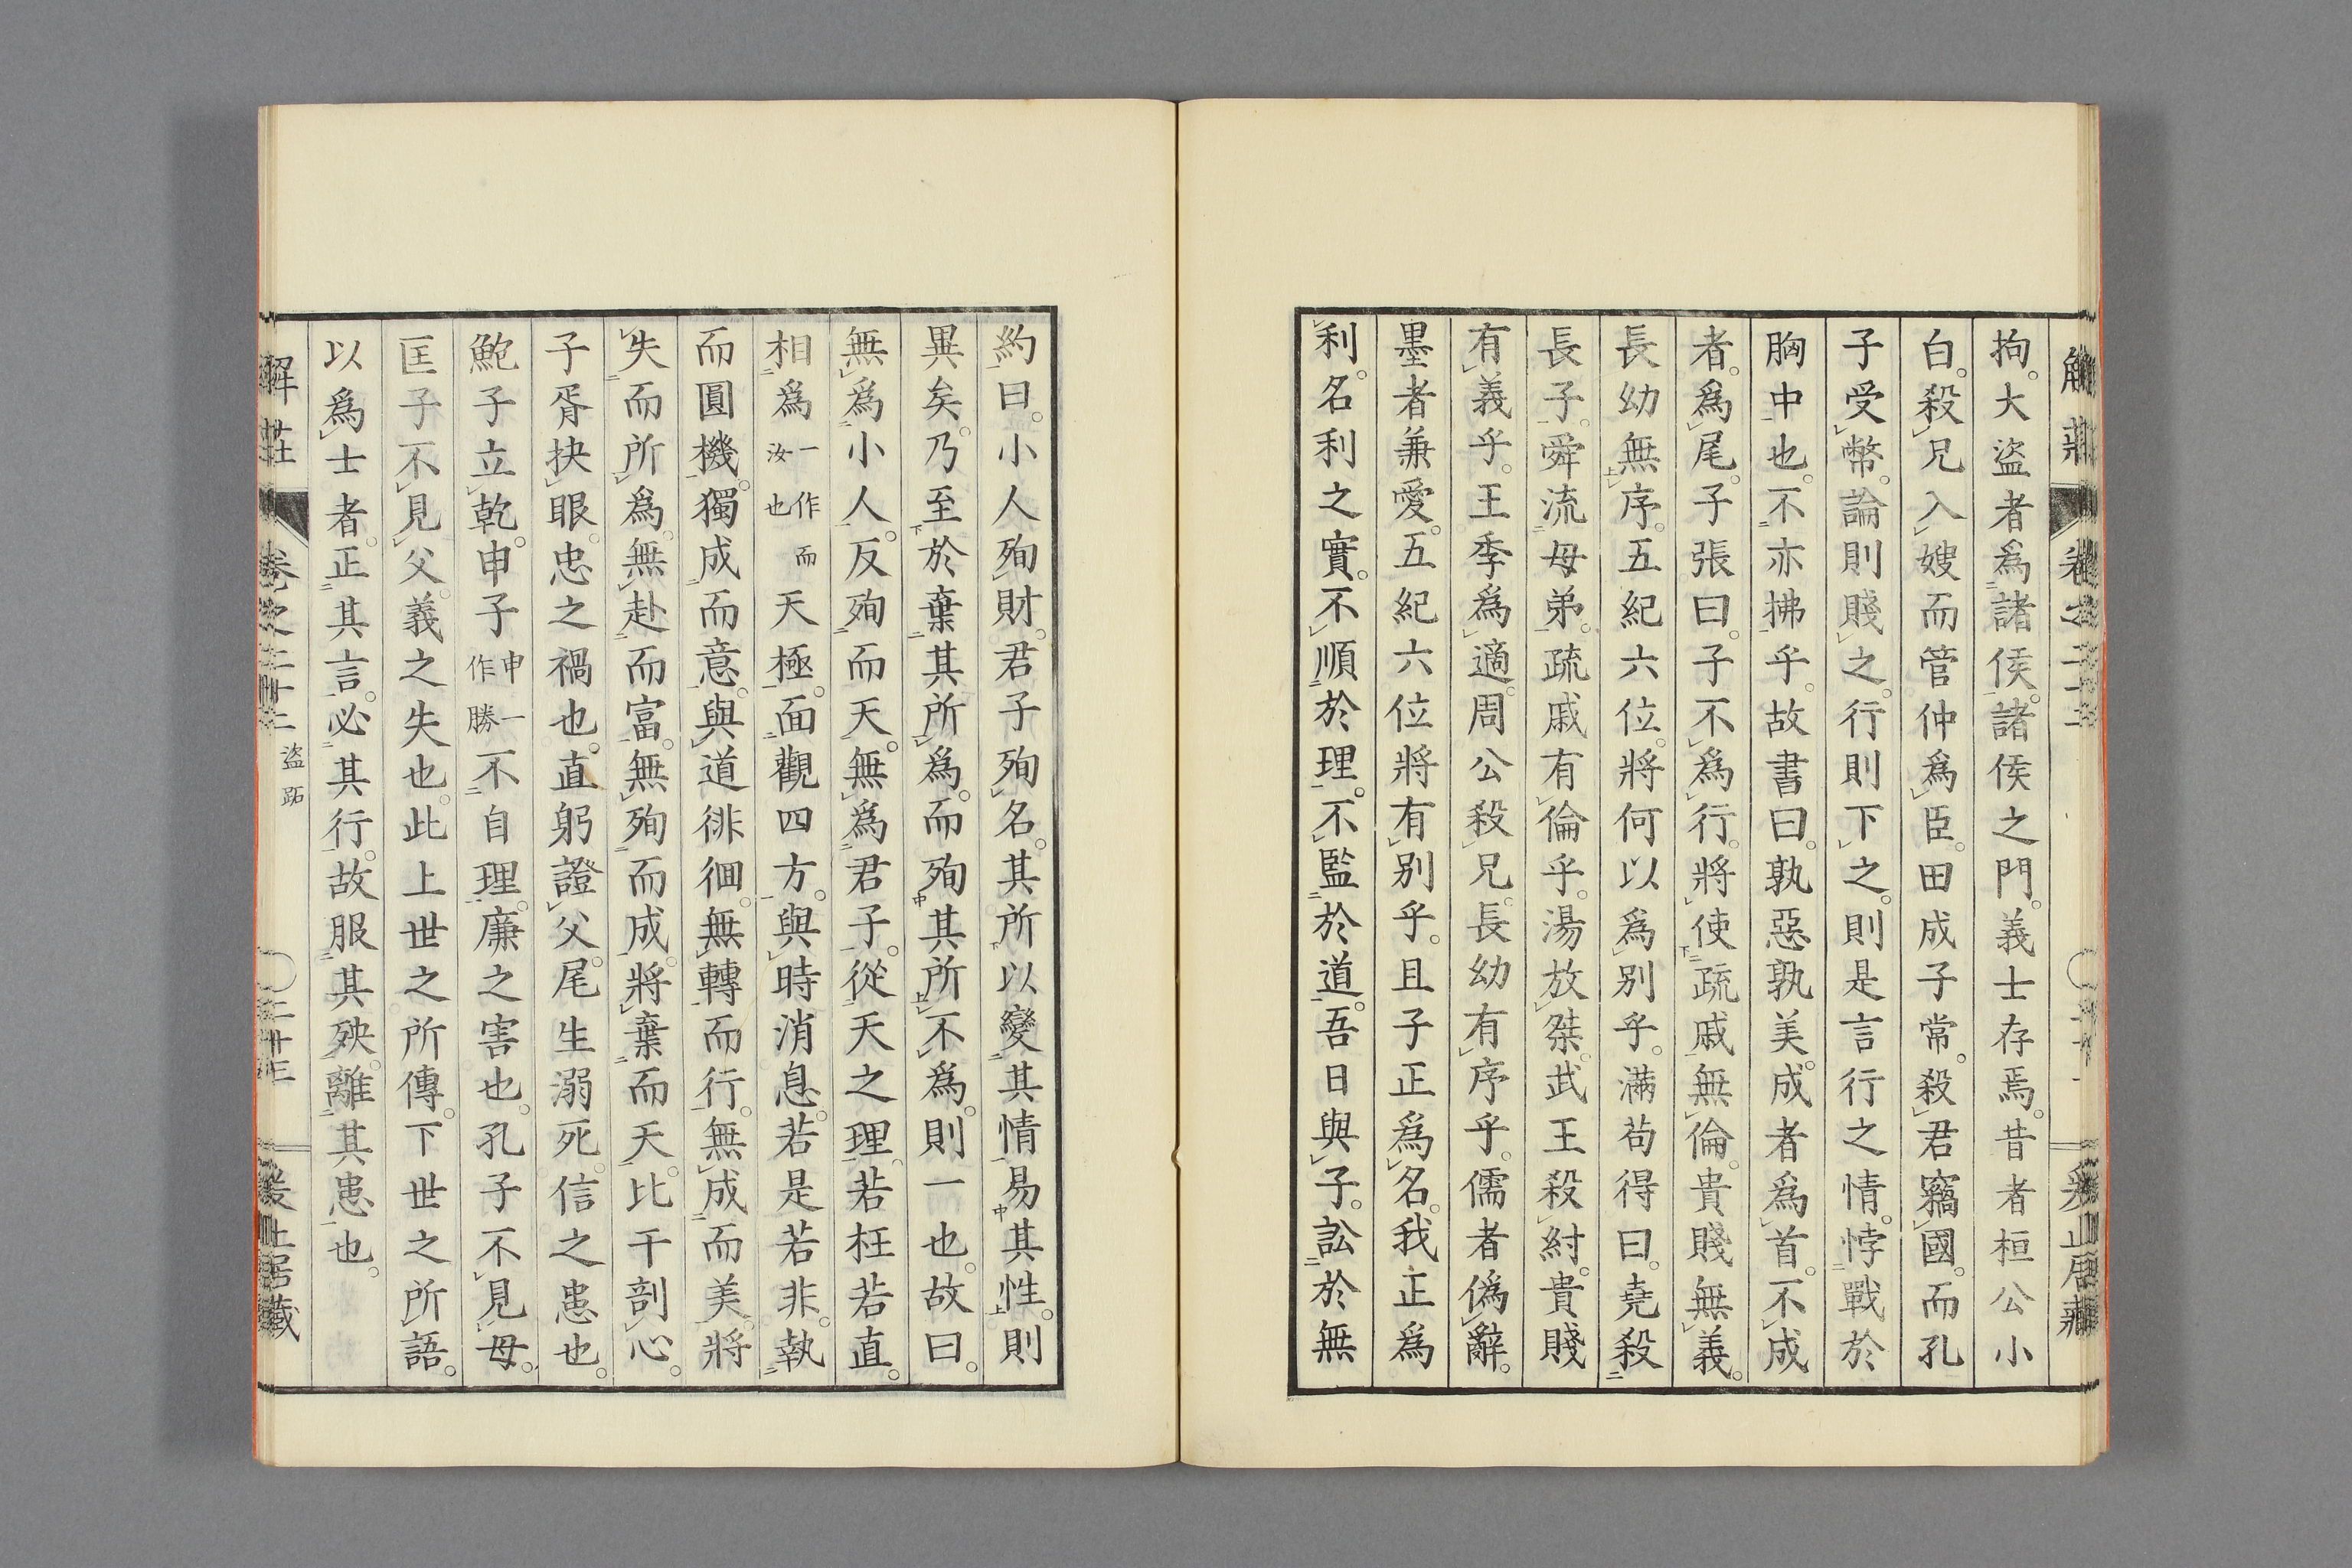 拘。大盜者爲諸侯。諸侯之門。義士存焉。昔者桓公小
白。殺兄入嫂而管仲爲臣。田成子常。殺君竊國。而孔
子受幣。論則賤之。行則下之。則是言行之情。悖戰於
胸中也。不亦拂乎。故書曰。孰惡孰美。成者爲首。不成
者。爲尾。子張曰。子不爲行。將使疏戚無倫。貴賤無義。
長幼無序。五紀六位。將何以爲別乎。滿苟得曰。堯殺
長子。舜流母弟。疏戚有倫乎。湯放桀。武王殺紂。貴賤
有義乎。王季爲適。周公殺兄。長幼有序乎。儒者僞辭。
墨者兼愛。五紀六位將有別乎。且子正爲名。我正爲
利。名利之實。不順於理。不監於道。吾日與子。訟於無
約曰。小人殉財。君子殉名。其所以變其情易其性。則
異矣。乃至於棄其所爲。而殉其所不爲。則一也。故曰。
無爲小人。反殉而天。無爲君子。從天之理。若枉若直。
相爲一作而汝也天極。面觀四方。與時消息。若是若非。執
而圓機。獨成而意。與道徘徊。無轉而行。無成而美。將
失而所爲。無赴而富。無殉而成。將棄而天。比干剖心。
子胥抉眼。忠之禍也。直躬證父。尾生溺死。信之患也。
鮑子立乾。申子申一作勝不自理。廉之害也。孔子不見母。
匡子不見父。義之失也。此上世之所傳。下世之所語。
以爲士者。正其言。必其行。故服其殃。離其患也。
解莊 卷之二十二 盜跖 〇二十三